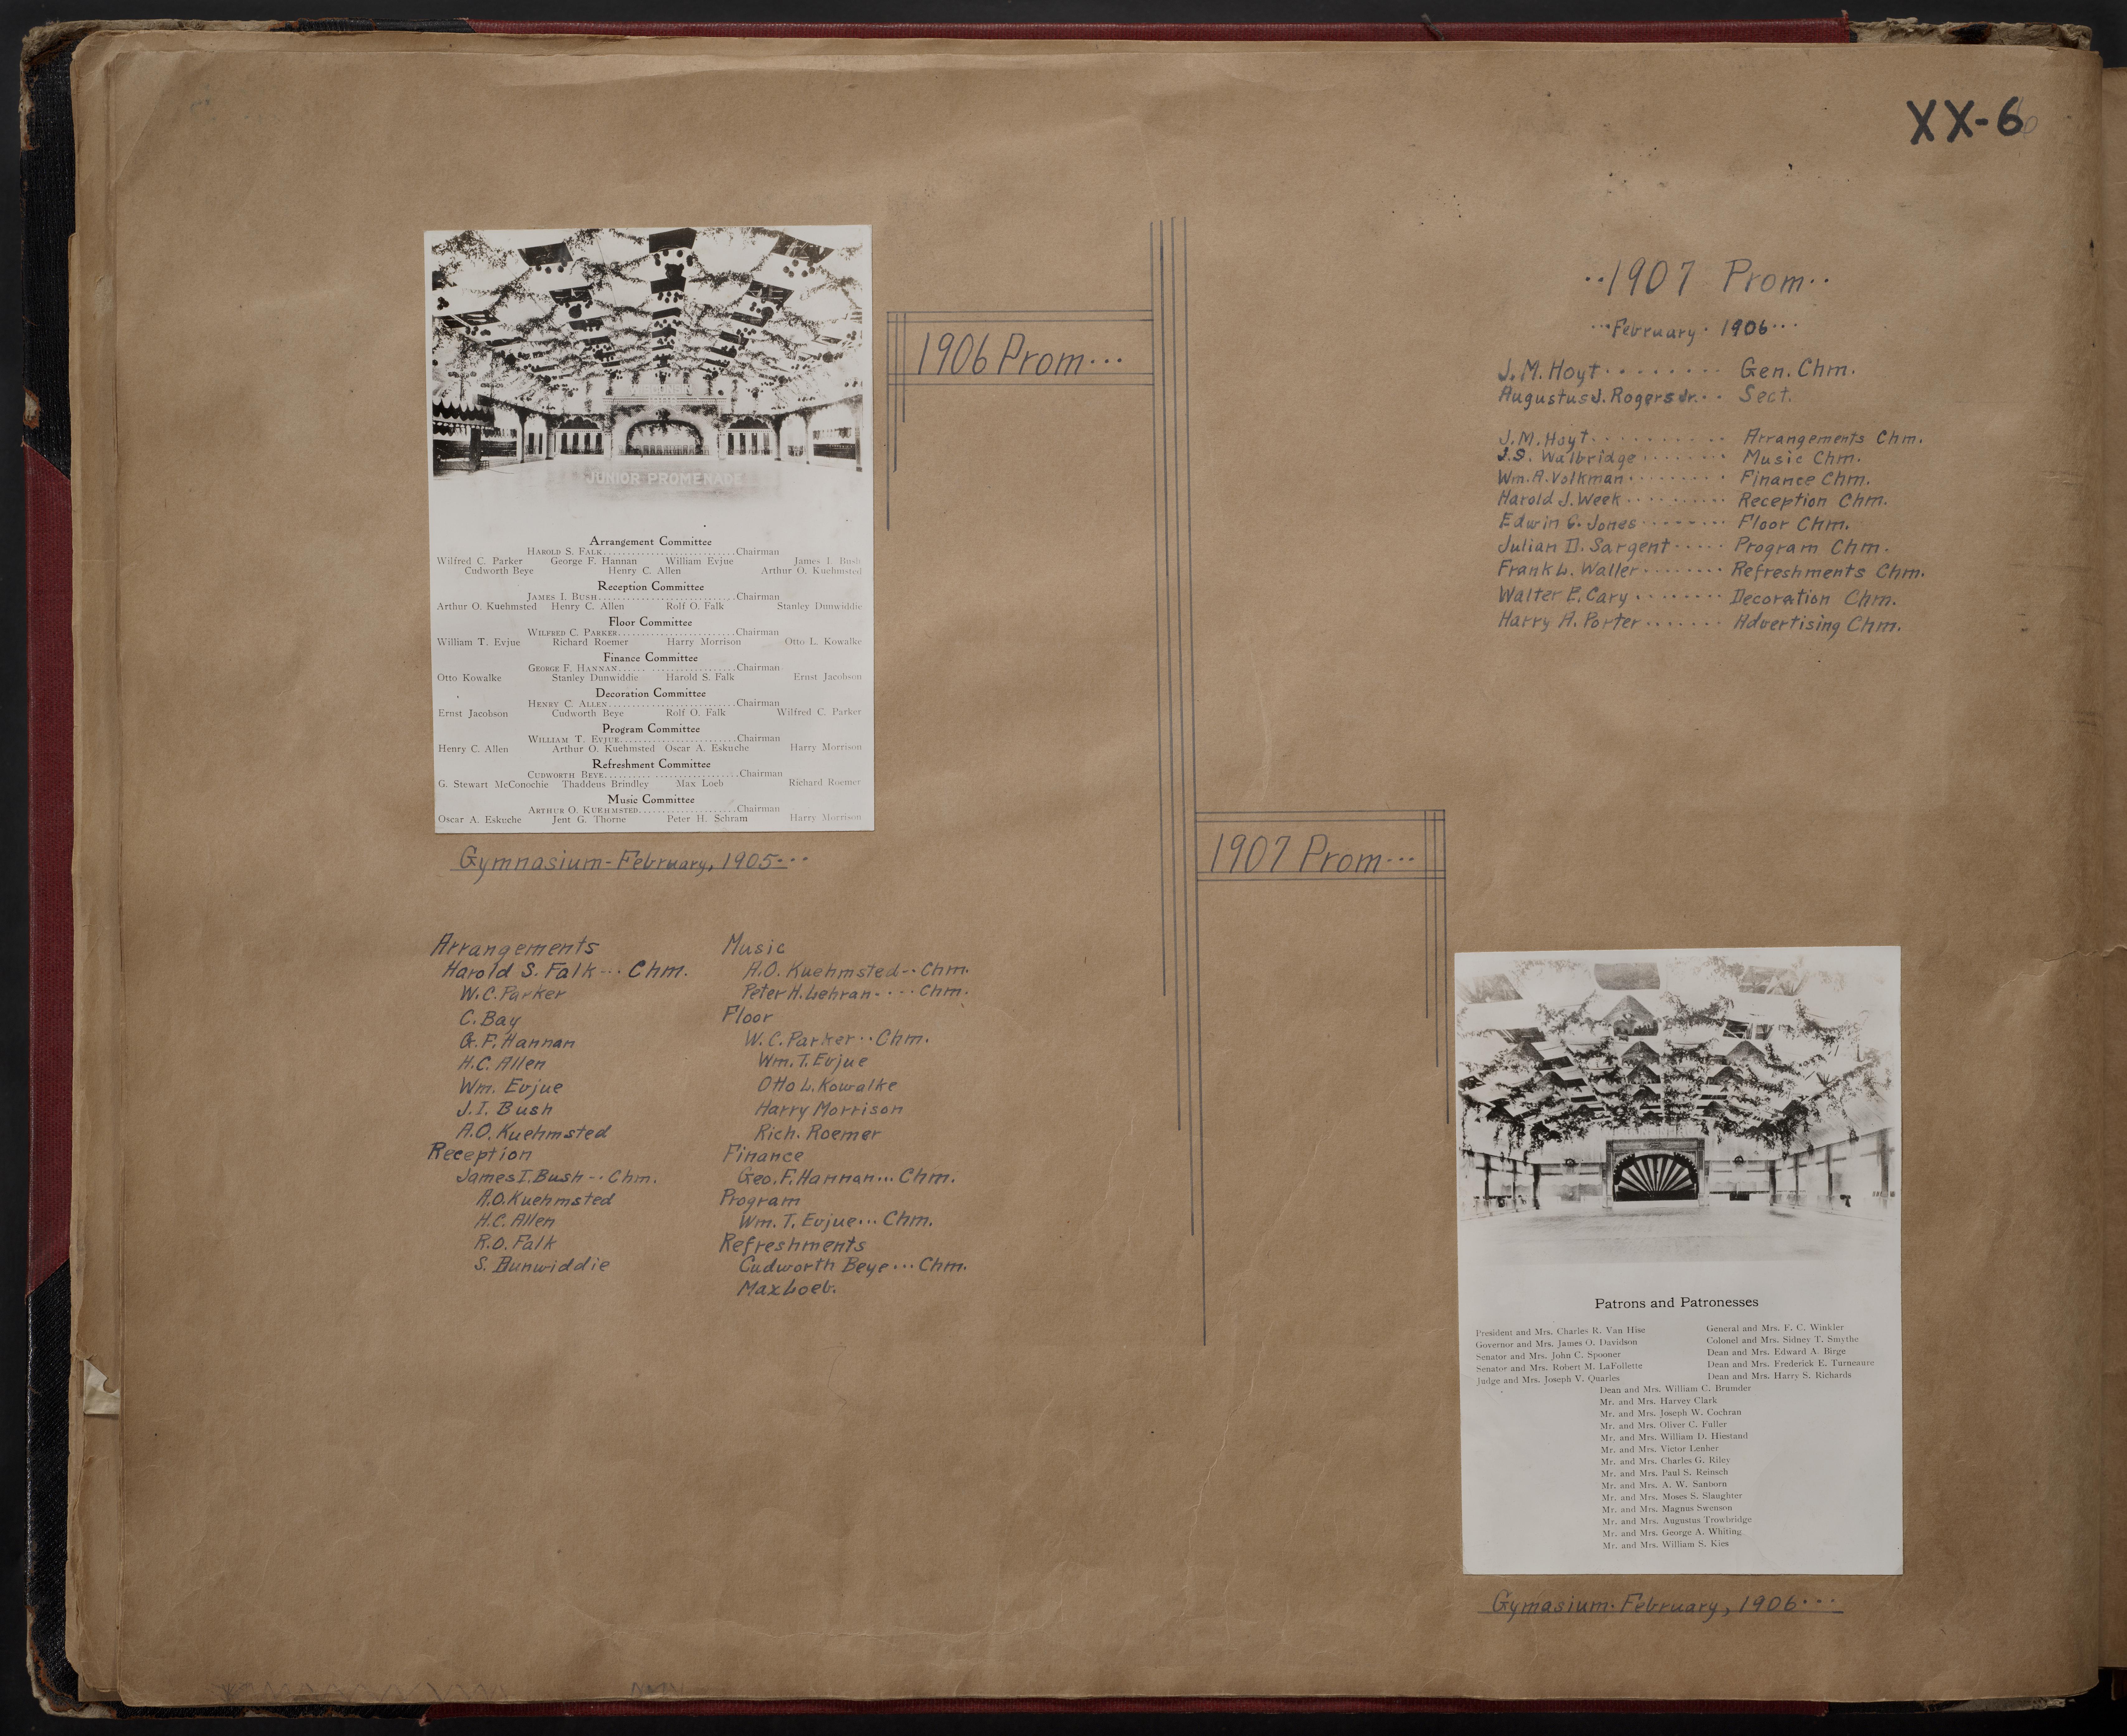 XX-6
1906 Prom...
JUNIOR PROMENADE
Arrangement Committee
HAROLD S. FALK............................Chairman
Wilfred C. Parker George F. Hannan William Evjue James I. Bush
Cudworth Beye Henry C. Allen Arthur O. Kuehmsted
Reception Committee
JAMES I. BUSH.............................Chairman
Arthur O. Kuehmsted Henry C. Allen Rolf O. Falk Stanley Dunwiddie
Floor Committee
WILFRED C. PARKER.........................Chairman
William T. Evjue Richard Roemer Harry Morrison Otto L. Kowalke
Finance Committee
GEORGE F. HANNAN...... ..................Chairman
Otto Kowalke Stanley Dunwiddie Harold S. Falk Ernst Jacobson
Decoration Committee
HENRY C. ALLEN...........................Chairman
Ernst Jacobson Cudworth Beye Rolf O. Falk Wilfred C. Parker
Program Committee
WILLIAM T. EVJUE.........................Chairman
Henry C. Allen Arthur O. Kuehmsted Oscar A. Eskuche Harry Morrison
Refreshment Committee
CUDWORTH BEYE.......... .................Chairman
G. Stewart McConochie Thaddeus Brindley Max Loeb Richard Roemer
Music Committee
ARTHUR O. KUEHMSTED.....................Chairman
Oscar A. Eskuche Jent G. Thorne Peter H. Schram Harry Morrison
Gymnasium-February, 1905...
Arrangements
Harold S. Falk... Chm.
W.C. Parker
C. Bay
G.F. Hannan
H.C. Allen
Wm. Evjue
J.I. Bush
A.O. Kuehmsted
Reception
James I. Bush... Chm.
A.O. Kuehmsted
H.C. Allen
R.O. Falk
S. Dunwiddie
Music
A.O. Kuehmsted.. Chm.
Peter H. Lehran.... Chm.
Floor
W.C. Parker.. Chm.
Wm. T. Evjue
Otto L. Kowalke
Harry Morrison
Rich. Roemer
Finance
Geo. F. Hannan... Chm.
Program
Wm. T. Evjue... Chm.
Refreshments
Cudworth Beye... Chm.
Max Loeb.
..1907 Prom..
...February. 1906...
J.M. Hoyt........ Gen. Chm.
Augustus J. Rogers Jr... Sect.
J.M. Hoyt.......... Arrangements Chm.
J.S. Walbridge........ Music Chm.
Wm. A. Volkman......... Finance Chm.
Harold J. Week.......... Reception Chm.
Edwin C. Jones........ Floor Chm.
Julian D. Sargent..... Program Chm.
Frank L. Waller........ Refreshments Chm.
Walter E. Cary........ Decoration Chm.
Harry H. Porter....... Advertising Chm.
1907 Prom...
Patrons and Patronesses
President and Mrs. Charles R. Van Hise
Governor and Mrs. James O. Davidson
Senator and Mrs. John C. Spooner
Senator and Mrs. Robert M. LaFollette
Judge and Mrs. Joseph V. Quarles
General and Mrs. F. C. Winkler
Colonel and Mrs. Sidney T. Smythe
Dean and Mrs. Edward A. Birge
Dean and Mrs. Frederick E. Turneaure
Dean and Mrs. Harry S. Richards
Dean and Mrs. William C. Brumder
Mr. and Mrs. Harvey Clark
Mr. and Mrs. Joseph W. Cochran
Mr. and Mrs. Oliver C. Fuller
Mr. and Mrs. William D. Hiestand
Mr. and Mrs. Victor Lenher
Mr. and Mrs. Charles G. Riley
Mr. and Mrs. Paul S. Reinsch
Mr. and Mrs. A. W. Sanborn
Mr. and Mrs. Moses S. Slaughter
Mr. and Mrs. Magnus Swenson
Mr. and Mrs. Augustus Trowbridge
Mr. and Mrs. George A. Whiting
Mr. and Mrs. William S. Kies
Gymasium. February, 1906...